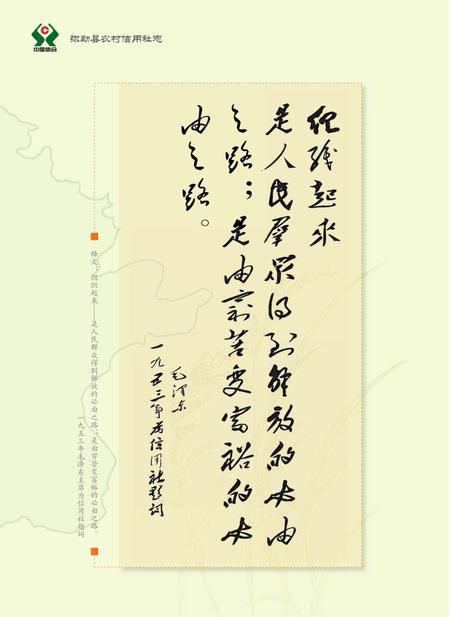 中国信合
弥勒县农村信用社志
组织起来
是人民群众得到解放的必由
之路；是由穷苦变富裕的必
由之路。
毛泽东
一九五三年为信用社题词
释文：组织起来——是人民群众得到解放的必由之路；是由穷苦变富裕的必由之路。
一九五三年毛泽东主席为信用社题词